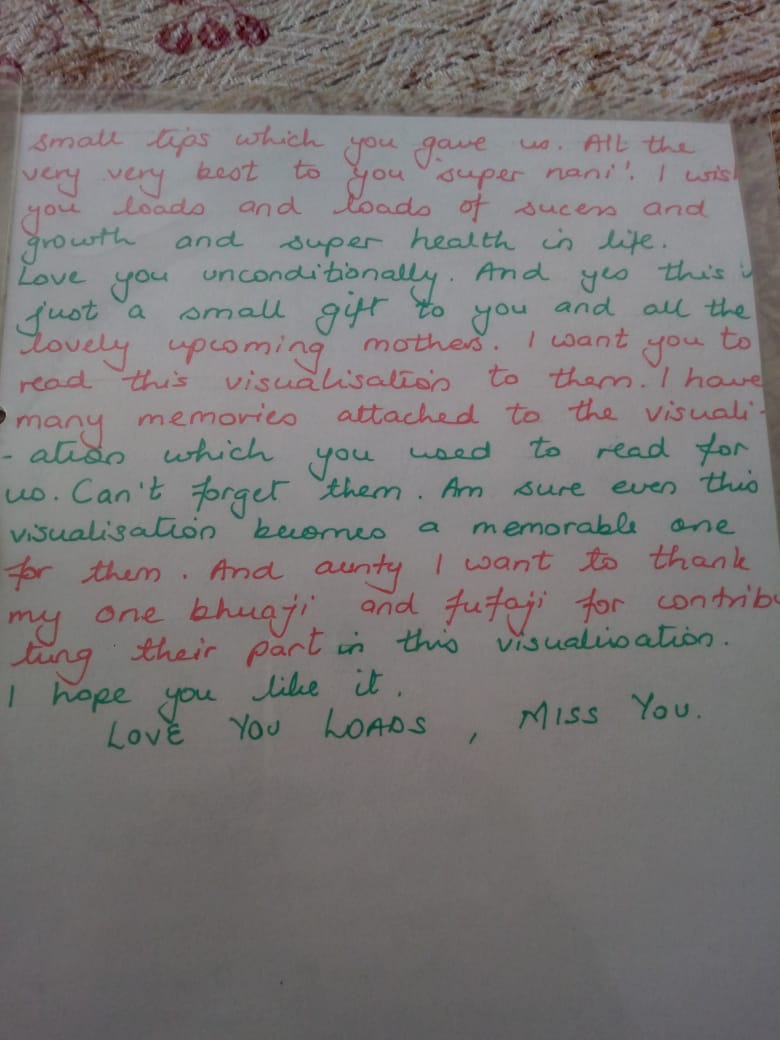 small tips which you gave us. All the
very very best to you 'super nani'. I wish
you loads and loads of sucess and
growth and super health in life.
Love you unconditionally. And yes this i
just a small gift to you and all the
lovely upcoming mothers. I want you to
read this visualisation to them. I have
many memories attached to the visuali-
- ation which you used to read for
us. Can't forget them. Am sure even this
visualisation becomes a memorable one
for them. And aunty I want to thank
my one bhuaji and fufaji for contribu
tung their part in this visualisation.
I hope you like it.
LOVE YOU LOADS, MISS YOU.